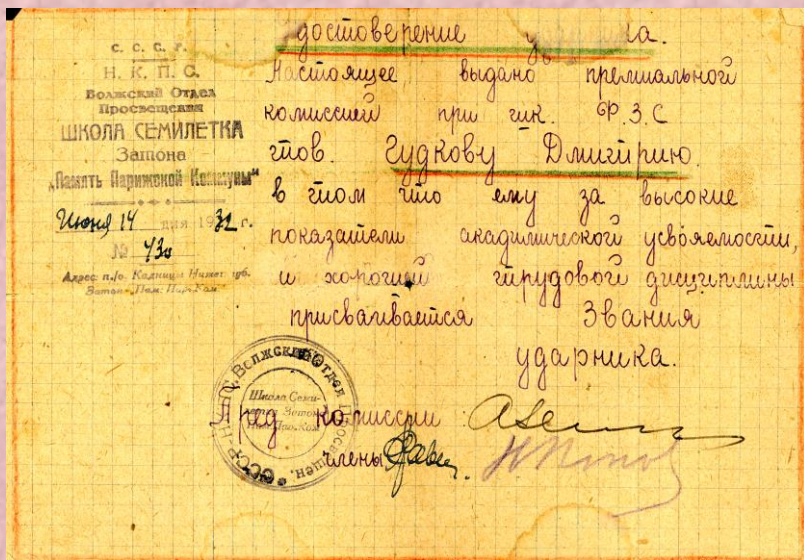 С. С. С. Р.
Н. К. П. С.
Волжский Отдел
Просвещения
ШКОЛА СЕМИЛЕТКА
Затона
„Память Парижской Коммуны"
Июня 14 дня 1932 г.
№ 430
Адрес: п./о. Кадницы Нижег. губ.
Затон „Пам. Пар. Ком.
достоверение
Настоящее выдано премиальной
комиссией при гик. Ф.З.С
тов. Гудкову Дмитрию.
в том что ему за высокие
показатели академической усвояемости,
и хорошей трудовой дисциплины
присваивается Звания
ударника.
Пред комиссии
члены
С.С.С.Р. Н.К.П.С. Волжский Отдел Просвещен.
Школа Семи-
летка Затона
Пам. Пар. Ком.